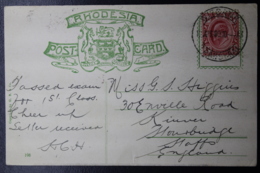 RHODESIA
POST CARD
Passed exam
for 1st Class.
Cheer up
Letter received
A.C.H
Miss G. S. Higgins
30 Road
Kinver
Stourbridge
Staffs
England.